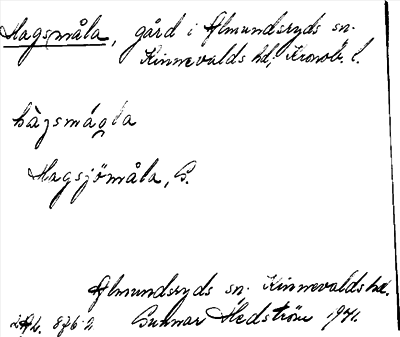 Hagsmåla, gård i Almundsryds sn.
Kinnevalds hd, Kronob. l.
Hagsjömåla, G.
Almundsryds sn. Kinnevalds hd.
Gunnar Hedström 1941.